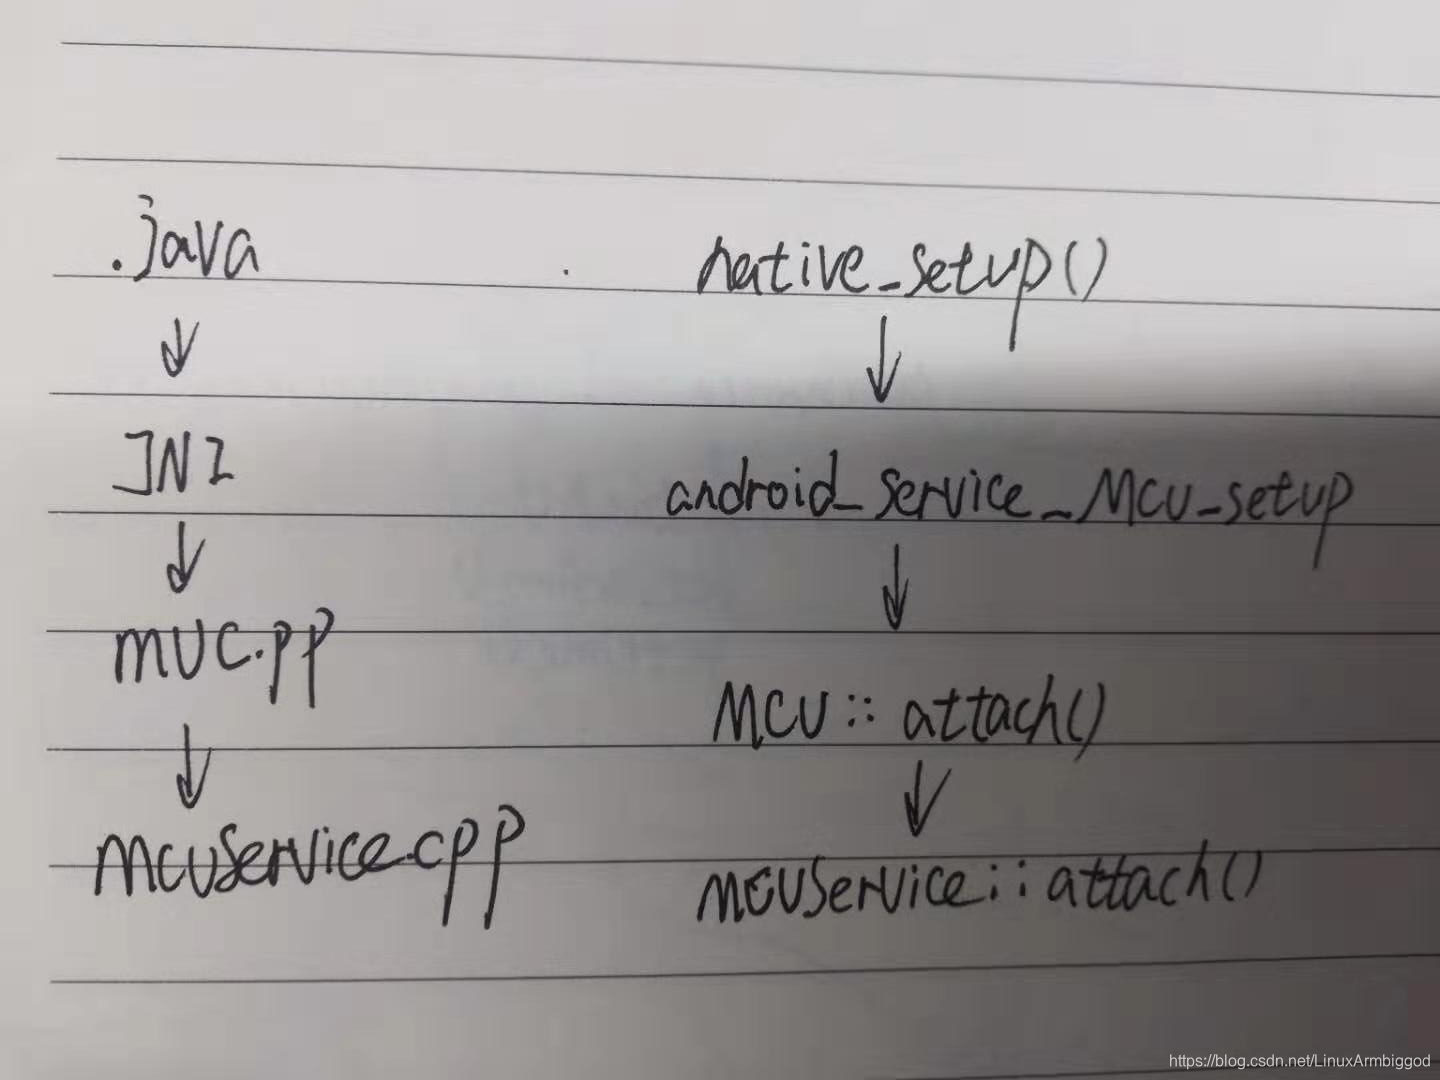 .java
↓
JNI
↓
mUC.pp
↓
mcuService.cpp
native_setup()
↓
android_service_Mcu_setup
↓
MCU::attach()
↓
mcuService::attach()
https://blog.csdn.net/LinuxArmbiggod